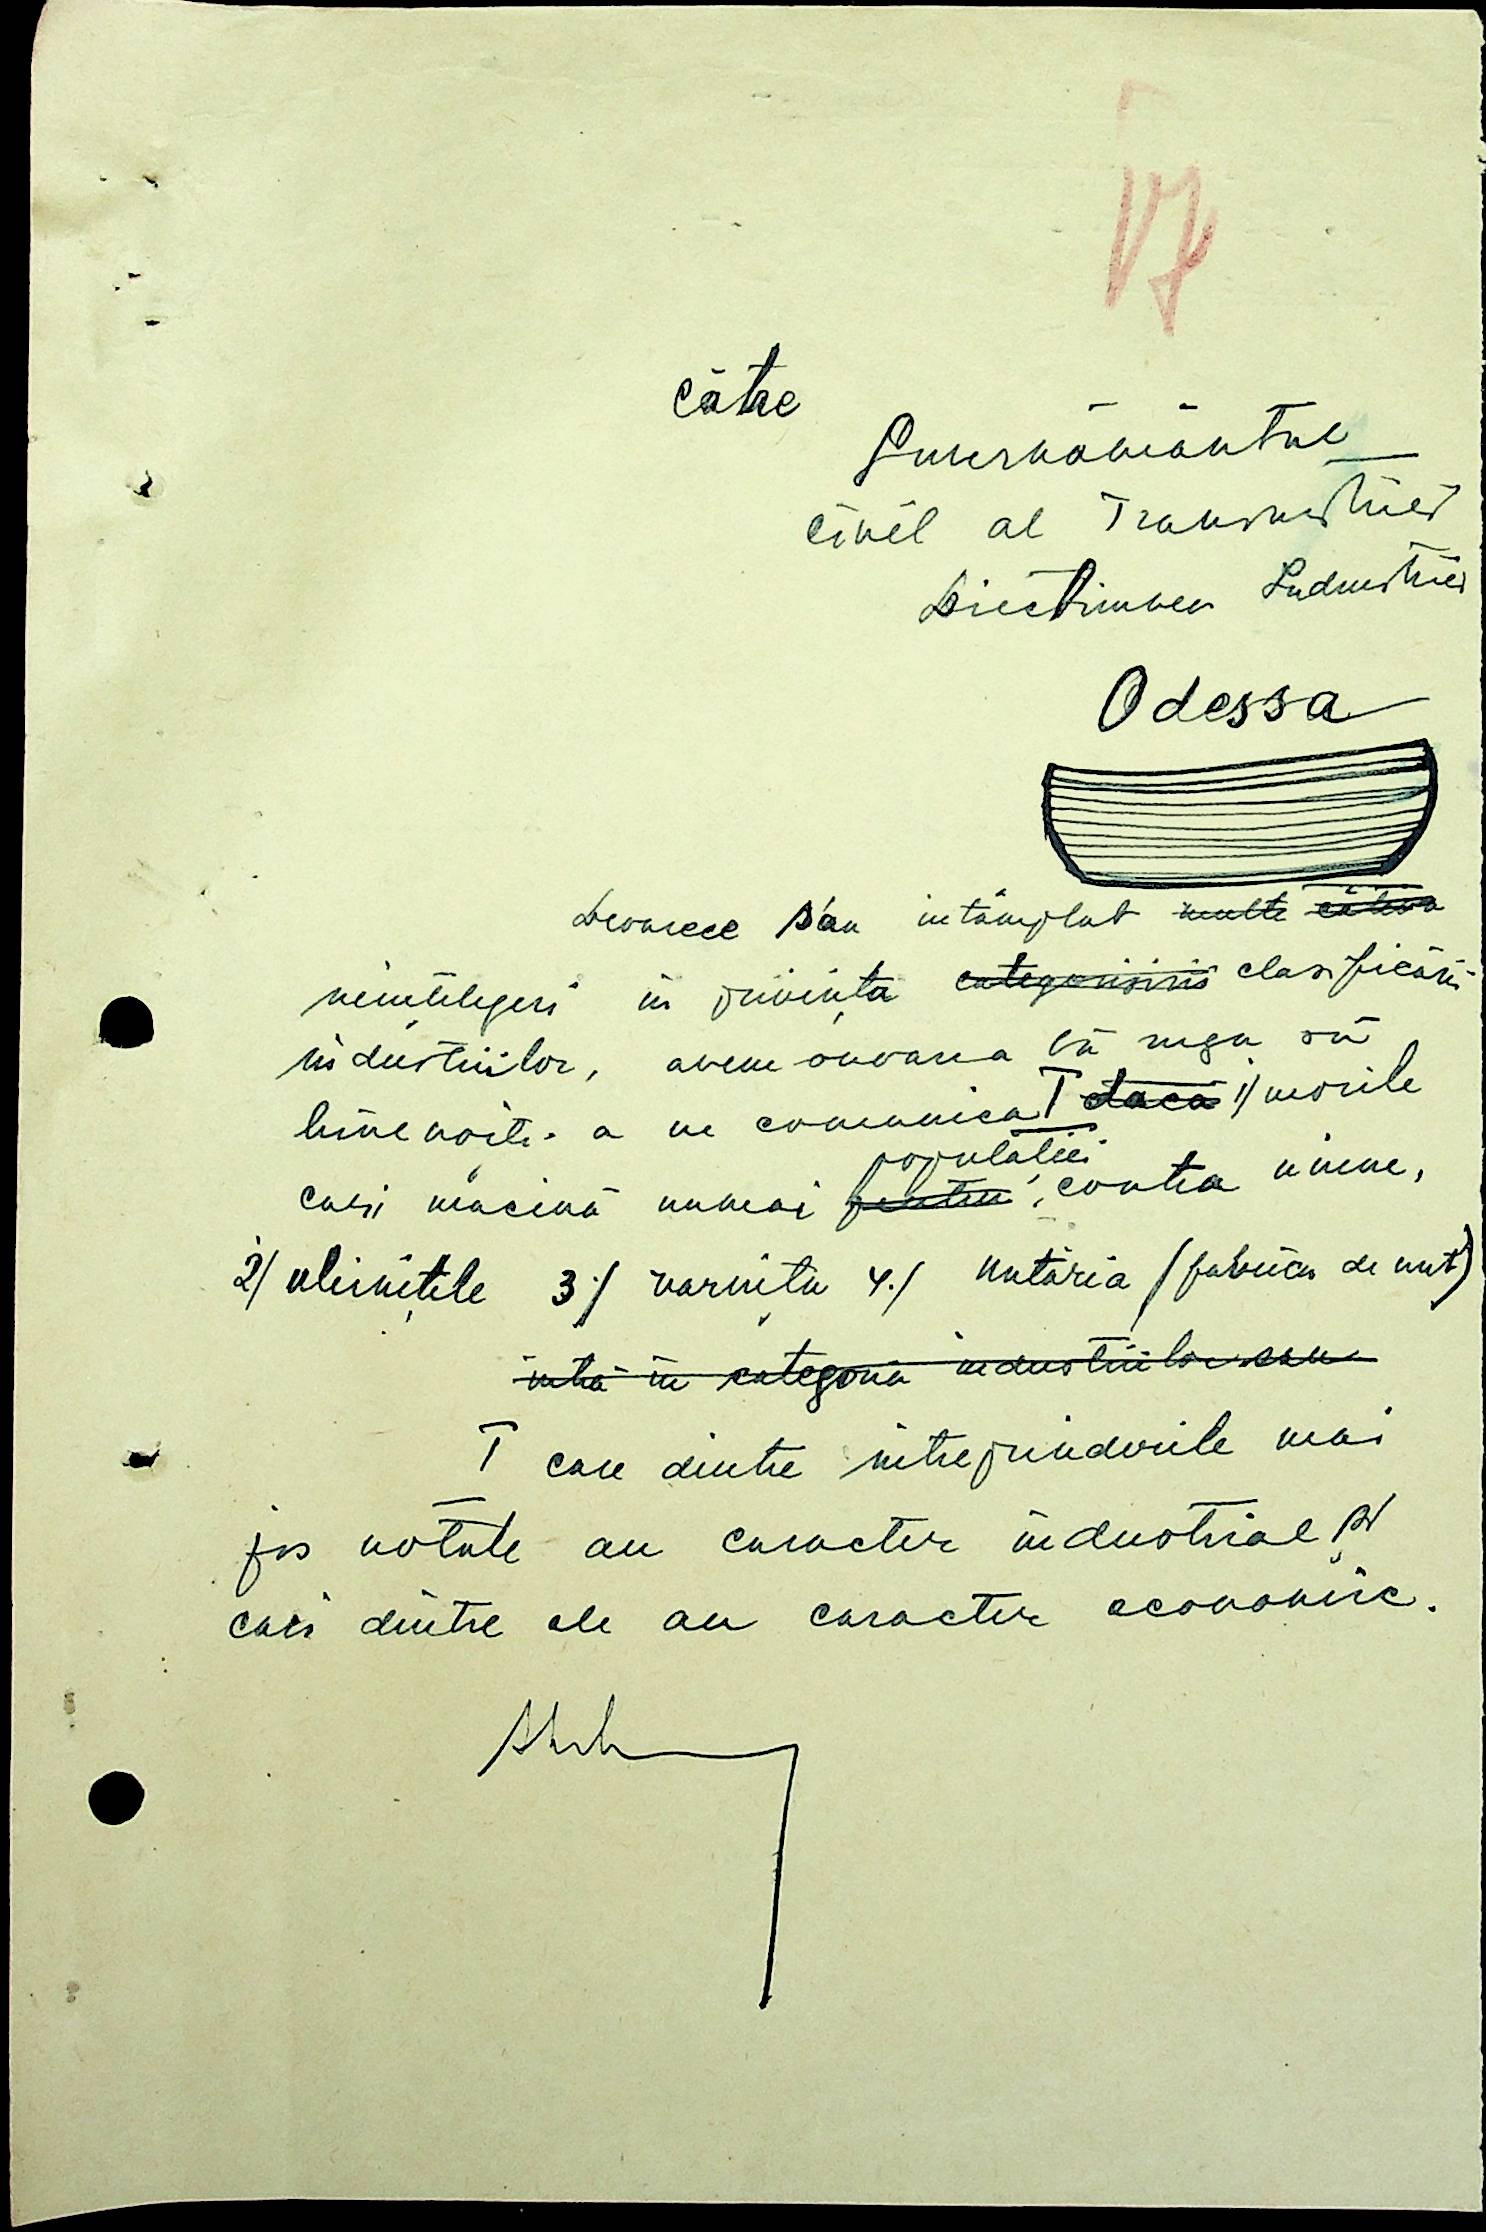 către
Guvernământul
Civil al Transnistriei
Direcțiunea Industriei
Odessa
Deoarece s'au întâmplat multe câteva
neînțelegeri în privința categorisirii clasificării
industriilor, avem onoarea vă ruga să
binevoiți a ne comunica T dacă 1/ morile
populației
cari macină numai pentru, contra uium,
2/ olinițele 3./ varnița 4./ nutăria (fabrica de nut)
intră în categoria industriilor sau
T care dintre întreprinderile mai
jos notate au caracter industrial și
cari dintre ele au caracter economic.